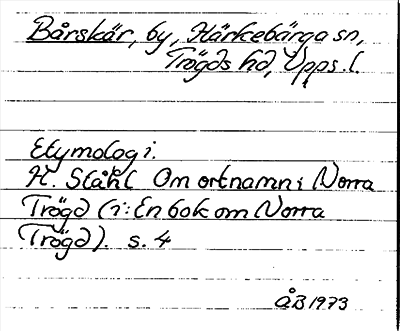 Bårskär, by, Härkebärga sn,
Trögds hd, Upps. l.
Etymologi.
H. Ståhl Om ortnamn i Norra
Trögd (i: En bok om Norra
Trögd). s. 4
ÅB 1973